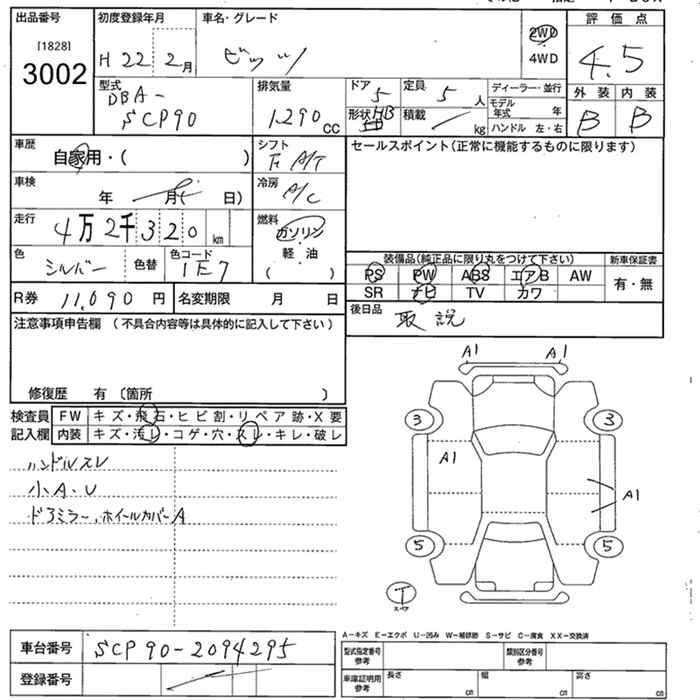 出品番号
[1828]
3002
初度登録年月
H 22 2月
車名・グレード
ビッツ
2WD
4WD
評価点
4.5
型式
DBA-
SCP90
排気量
1,290 CC
ドア
5
形状 HB
定員
5 人
積載
kg
ディーラー・並行
モデル年式 年
ハンドル 左・右
外装 内装
B B
車歴
自家用・( )
シフト
F A/T
セールスポイント(正常に機能するものに限ります)
車検
年 月( 日)
冷房
A/C
走行
4万2千320 km
燃料
ガソリン
軽油
( )
色
シルバー
色替
色コード
1E7
装備品(純正品に限り丸をつけて下さい)
新車保証書
PS PW ABS エアB AW
SR ナビ TV カワ
有・無
R券 11,090 円
名変期限 月 日
後日品
取説
注意事項申告欄 (不具合内容等は具体的に記入して下さい)
修復歴 有 〔箇所 〕
検査員記入欄
FW キズ・飛石・ヒビ割・リペア跡・X要
内装 キズ・汚レ・コゲ・穴・スレ・キレ・破レ
ハンドルスレ
小A.U
ドアミラー、ホイールカバーA
A1 A1
3 3
A1
A1
5 5
T
スペア
A-キズ E-エクボ U-凹み W-補修跡 S-サビ C-腐食 XX-交換済
車台番号 SCP90-2094295
登録番号
型式指定番号 参考
類別区分番号 参考
車庫証明用 参考
長さ cm
幅 cm
高さ cm